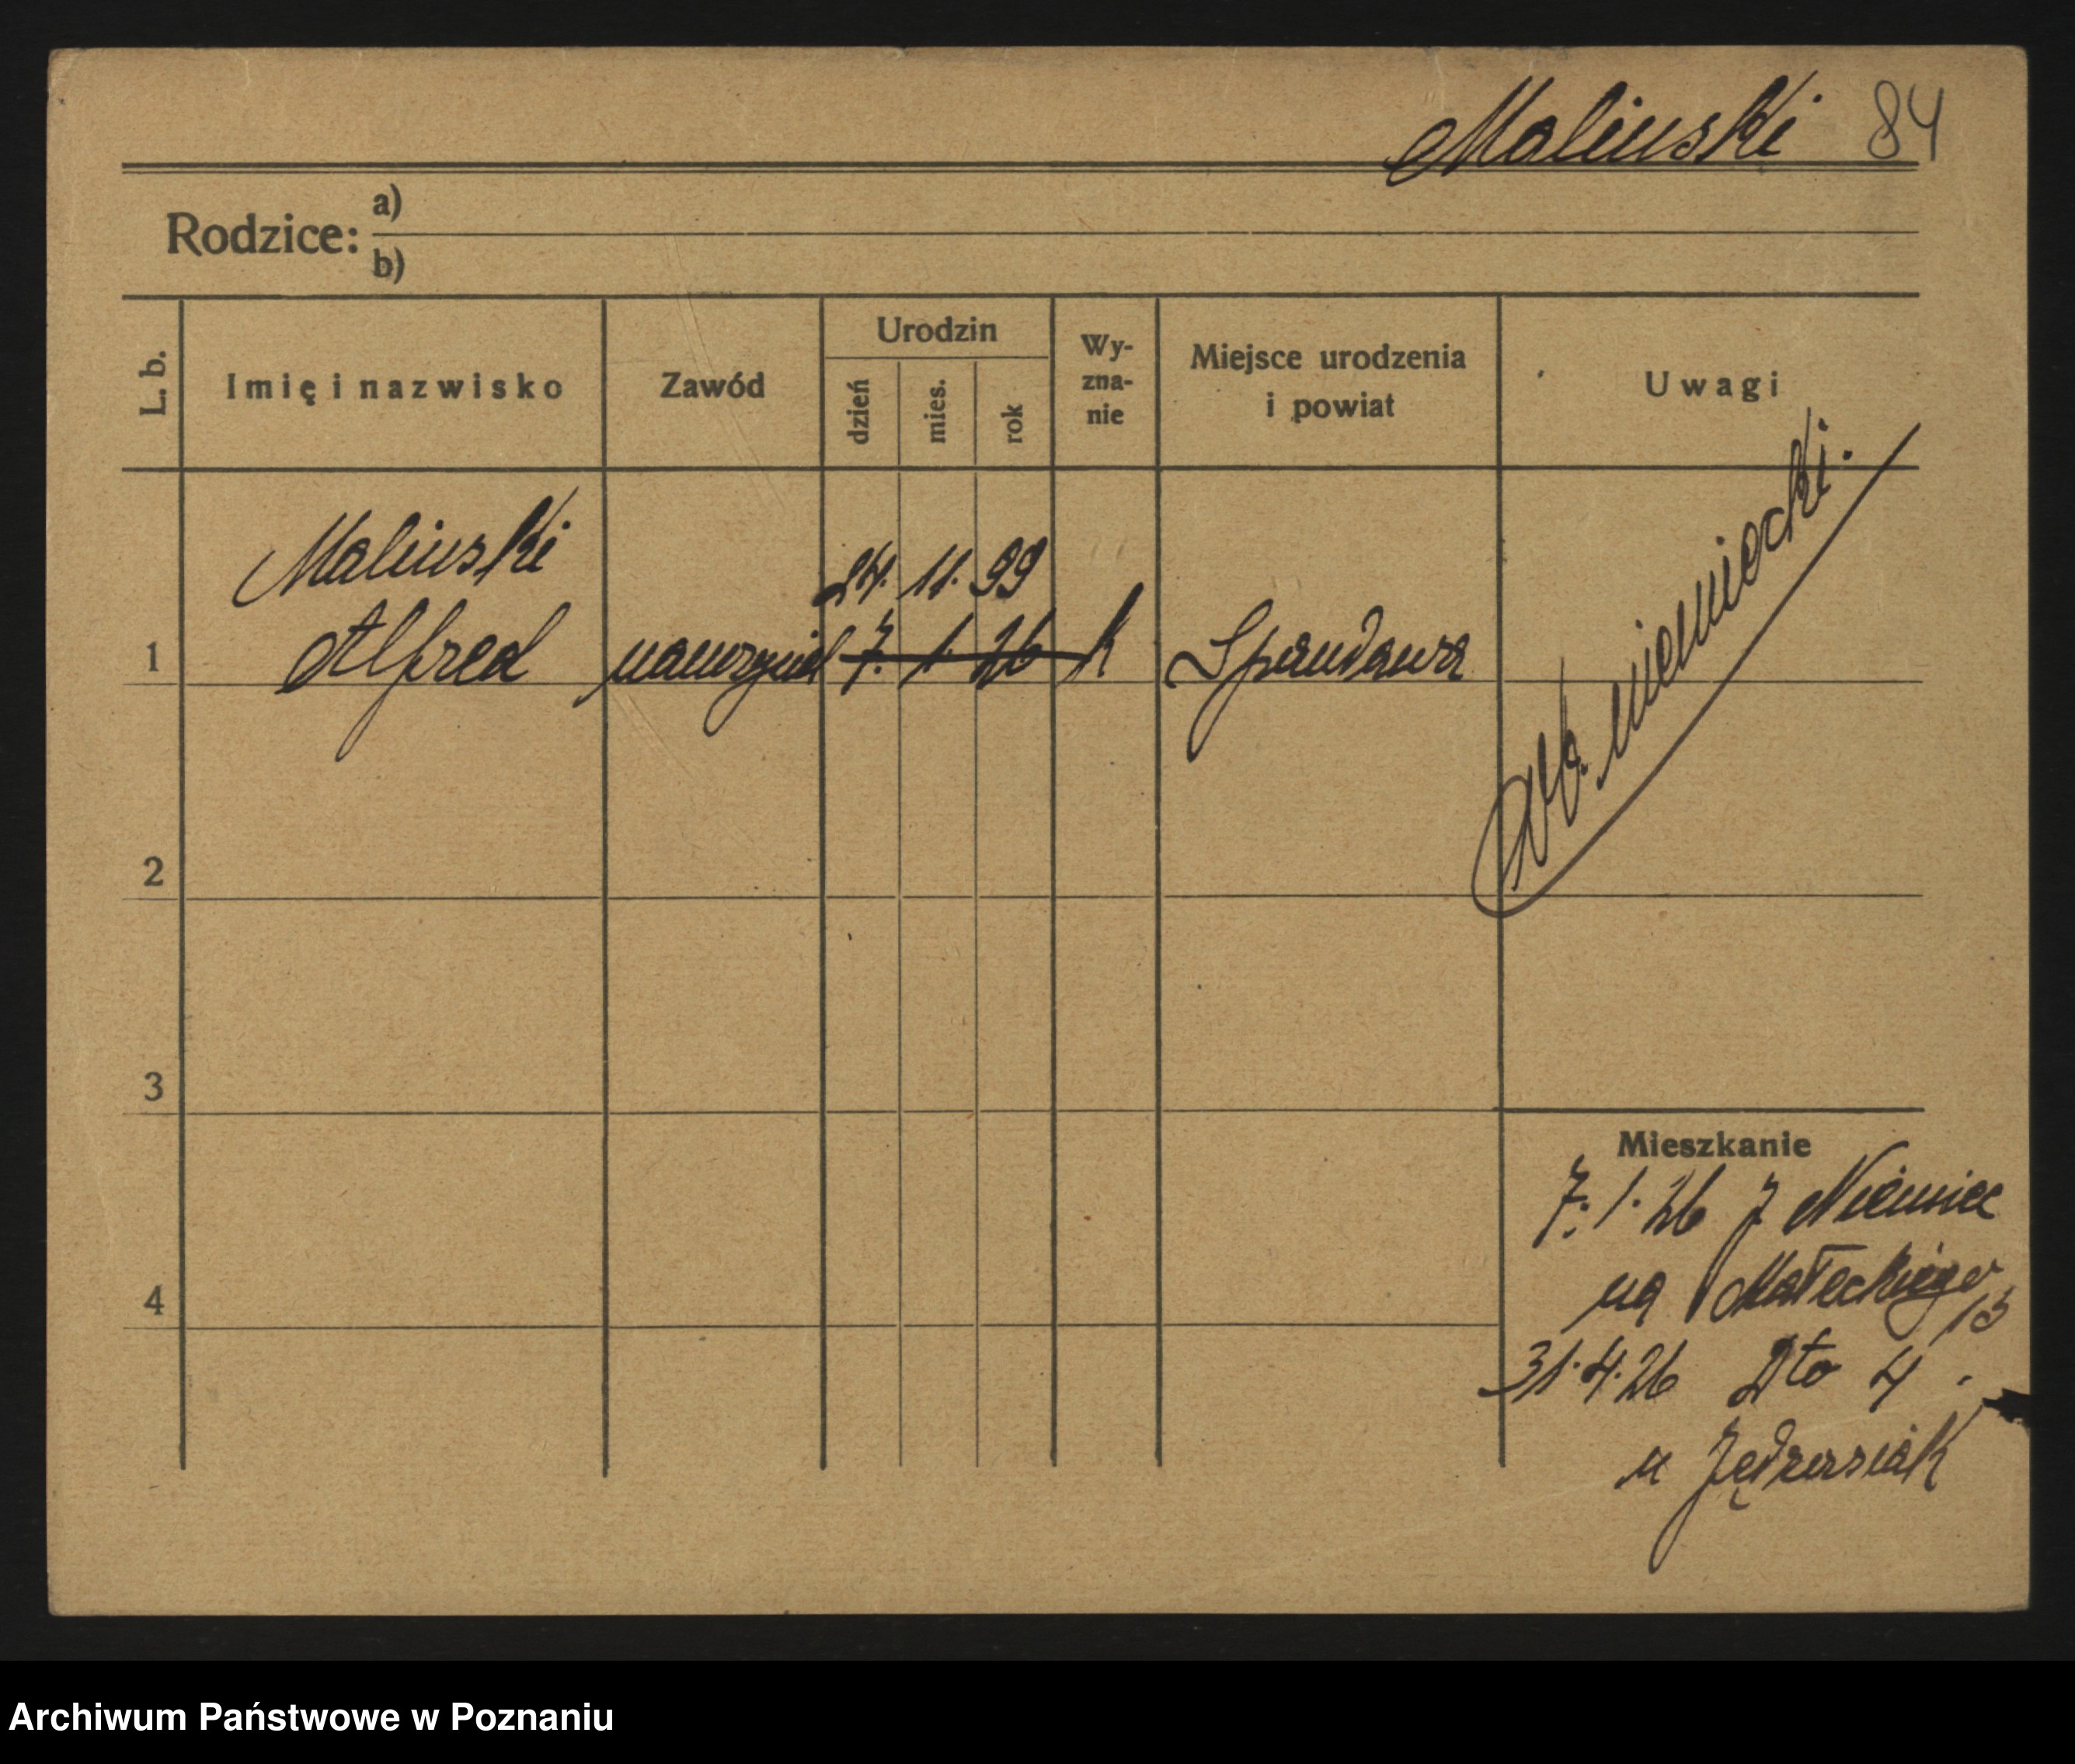 Maliński 84
Rodzice: a)
b)
L. b.
Imię i nazwisko
Zawód
Urodzin
dzień
mies.
rok
Wy-
zna-
nie
Miejsce urodzenia
i powiat
Uwagi
Maliński
24. 11. 99
1 Alfred nauczyciel 7. 1. 26 k Spandawa
Ob. niemiecki.
2
3
4
Mieszkanie
7. 1. 26 z Niemiec
na Małeckiego
13
31. 4. 26 Dto 4
u Jędrzesiak
Archiwum Państwowe w Poznaniu